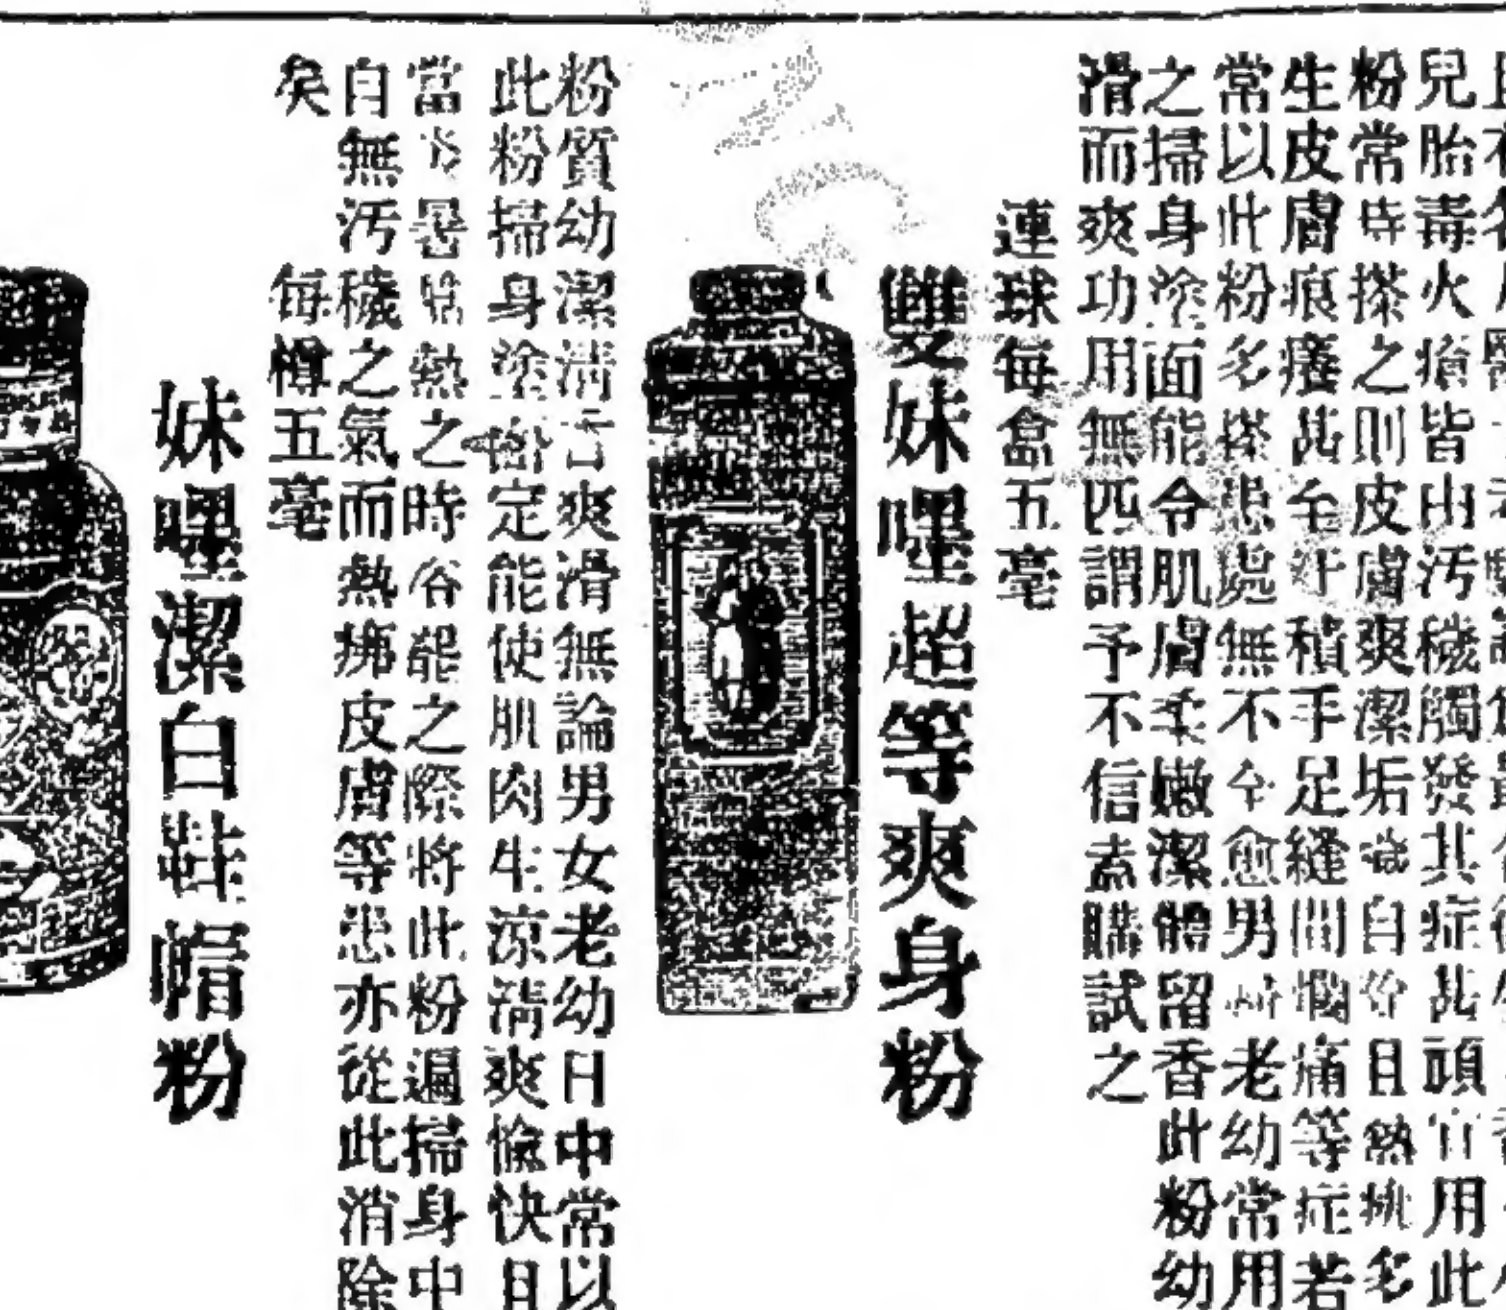 兒胎毒火瘡皆由汚穢觸發其症甚頭官用此
粉常時搽之則皮膚爽潔垢自熱痱多
生皮膚痕癢甚至汗積手足縫間爛痛等症若
常以此粉多搽患處無不全愈男老幼常用
之掃身塗面能令肌膚柔嫩潔體留香此粉幼
滑而爽功用無匹謂予不信盍購試之
連球每盒五毫
雙妹嚜超等爽身粉
粉質幼潔清香爽滑無論男女老幼日中常以
此粉掃身塗定能使肌肉生涼清爽愉快且
當炎暑常熱之時浴罷之際將此粉遍掃身中
自無汚穢之氣而熱痱皮膚等患亦從此消除
矣
每樽五毫
妹嚜潔白鞋帽粉